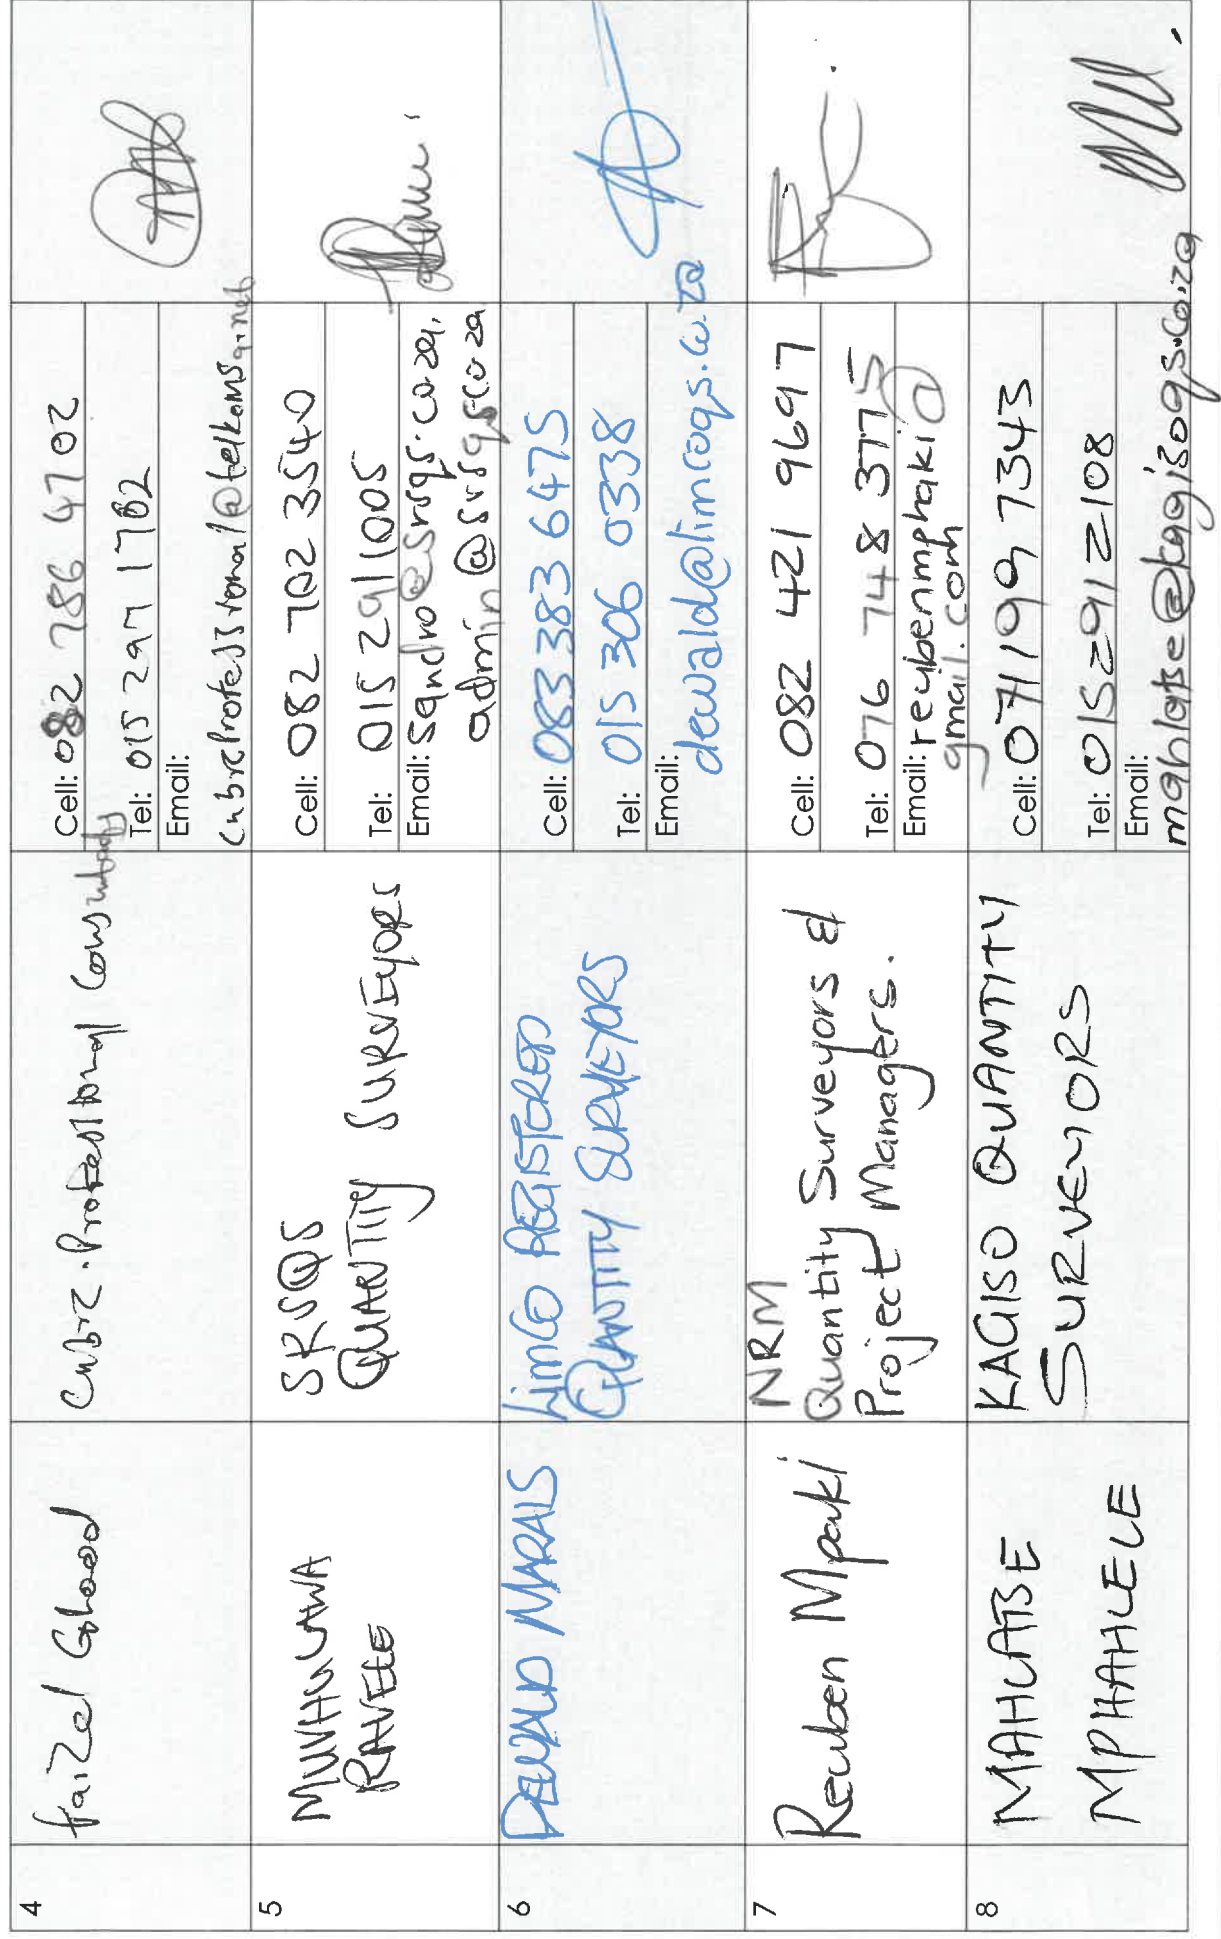 4
Faizel Ghood
Cubre Professional Consultants
Cell: 082 786 4702
Tel: 015 297 1702
Email:
cubreprofessional@telkomsa.net
5
MUVHULAWA
RAVELE
SRSQS
QUANTITY SURVEYORS
Cell: 082 702 3540
Tel: 015 2911005
Email: sandro@srsqs.co.za,
admin@srsqs.co.za
6
DEWALD MARAIS
LimCo REGISTERED
QUANTITY SURVEYORS
Cell: 083 383 6475
Tel: 015 306 0338
Email:
dewald@limcoqs.co.za
7
Reuben Mpaki
NRM
Quantity Surveyors &
Project Managers.
Cell: 082 421 9697
Tel: 076 748 3775
Email: reuibenmphaki@
gmail.com
8
MAHLATSE
MPHAHLELE
KAGISO QUANTITY
SURVEYORS
Cell: 071 199 7343
Tel: 015 291 2108
Email:
mahlatse@kagisoqs.co.za